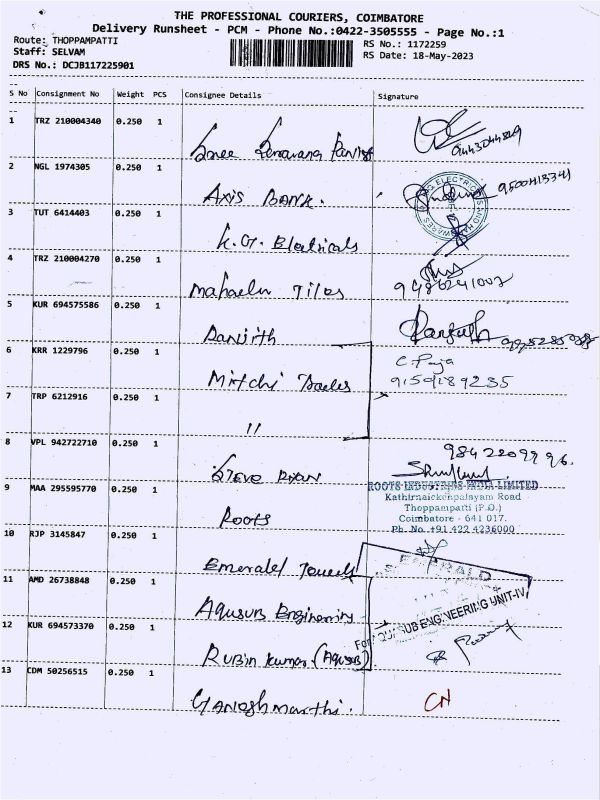 THE PROFESSIONAL COURIERS, COIMBATORE
Delivery Runsheet - PCM - Phone No.:0422-3505555 - Page No.:1
Route: THOPPAMPATTI RS No.: 1172259
Staff: SELVAM RS Date: 18-May-2023
DRS No.: DCJB117225901
S No Consignment No Weight PCS Consignee Details Signature
1 TRZ 210004340 0.250 1
2 NGL 1974305 0.250 1 AXIS BANK.
3 TUT 6414403 0.250 1 K.G. Electricals
4 TRZ 210004270 0.250 1 Tiles 9486241002
5 KUR 694575586 0.250 1
6 KRR 1229796 0.250 1 C. Puja
9150189235
7 TRP 6212916 0.250 1 11
8 VPL 942722710 0.250 1 Steve 9842209996.
9 MAA 295595770 0.250 1 Roots
ROOTS INDUSTRIES INDIA LIMITED
Kathirnaickenpalayam Road
Thoppampatti (P.O.)
Coimbatore - 641 017.
Ph. No. +91 422 4236000
10 RJP 3145847 0.250 1 Emerald EMERALD
11 AMD 26738848 0.250 1 Aqusub Engineering
For AQUASUB ENGINEERING UNIT-IV
12 KUR 694573370 0.250 1 Rubin Kumar. (Aqusub)
13 CDM 50256515 0.250 1 CN